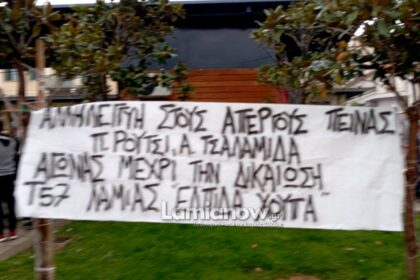 ΑΛΛΗΛΕΓΓΥΗ ΣΤΟΥΣ ΑΠΕΡΓΟΥΣ ΠΕΙΝΑΣ
Π. ΡΟΥΤΣΙ, Α. ΤΣΑΛΑΜΙΔΑ
ΑΓΩΝΑΣ ΜΕΧΡΙ ΤΗΝ ΔΙΚΑΙΩΣΗ
Τ57 ΛΑΜΙΑΣ "ΕΛΠΙΔΑ ΧΟΥΤΑ"
Lamianow.gr